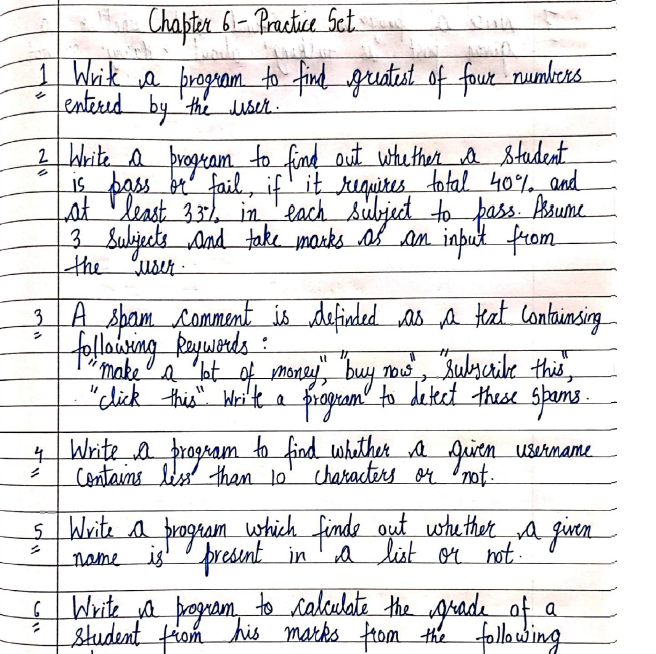 Chapter 6 - Practice Set
1 Write a program to find greatest of four numbers
entered by the user.
2 Write a program to find out whether a student
is pass or fail, if it requires total 40% and
at least 33% in each subject to pass. Assume
3 Subjects and take marks as an input from
the user.
3 A spam comment is definded as a text containsing
following keywords :
"make a lot of money", "buy now", "subscribe this",
"click this". Write a program to detect these spams.
4 Write a program to find whether a given username
contains less than 10 characters or not.
5 Write a program which finds out whether a given
name is present in a list or not.
6 Write a program to calculate the grade of a
student from his marks from the following